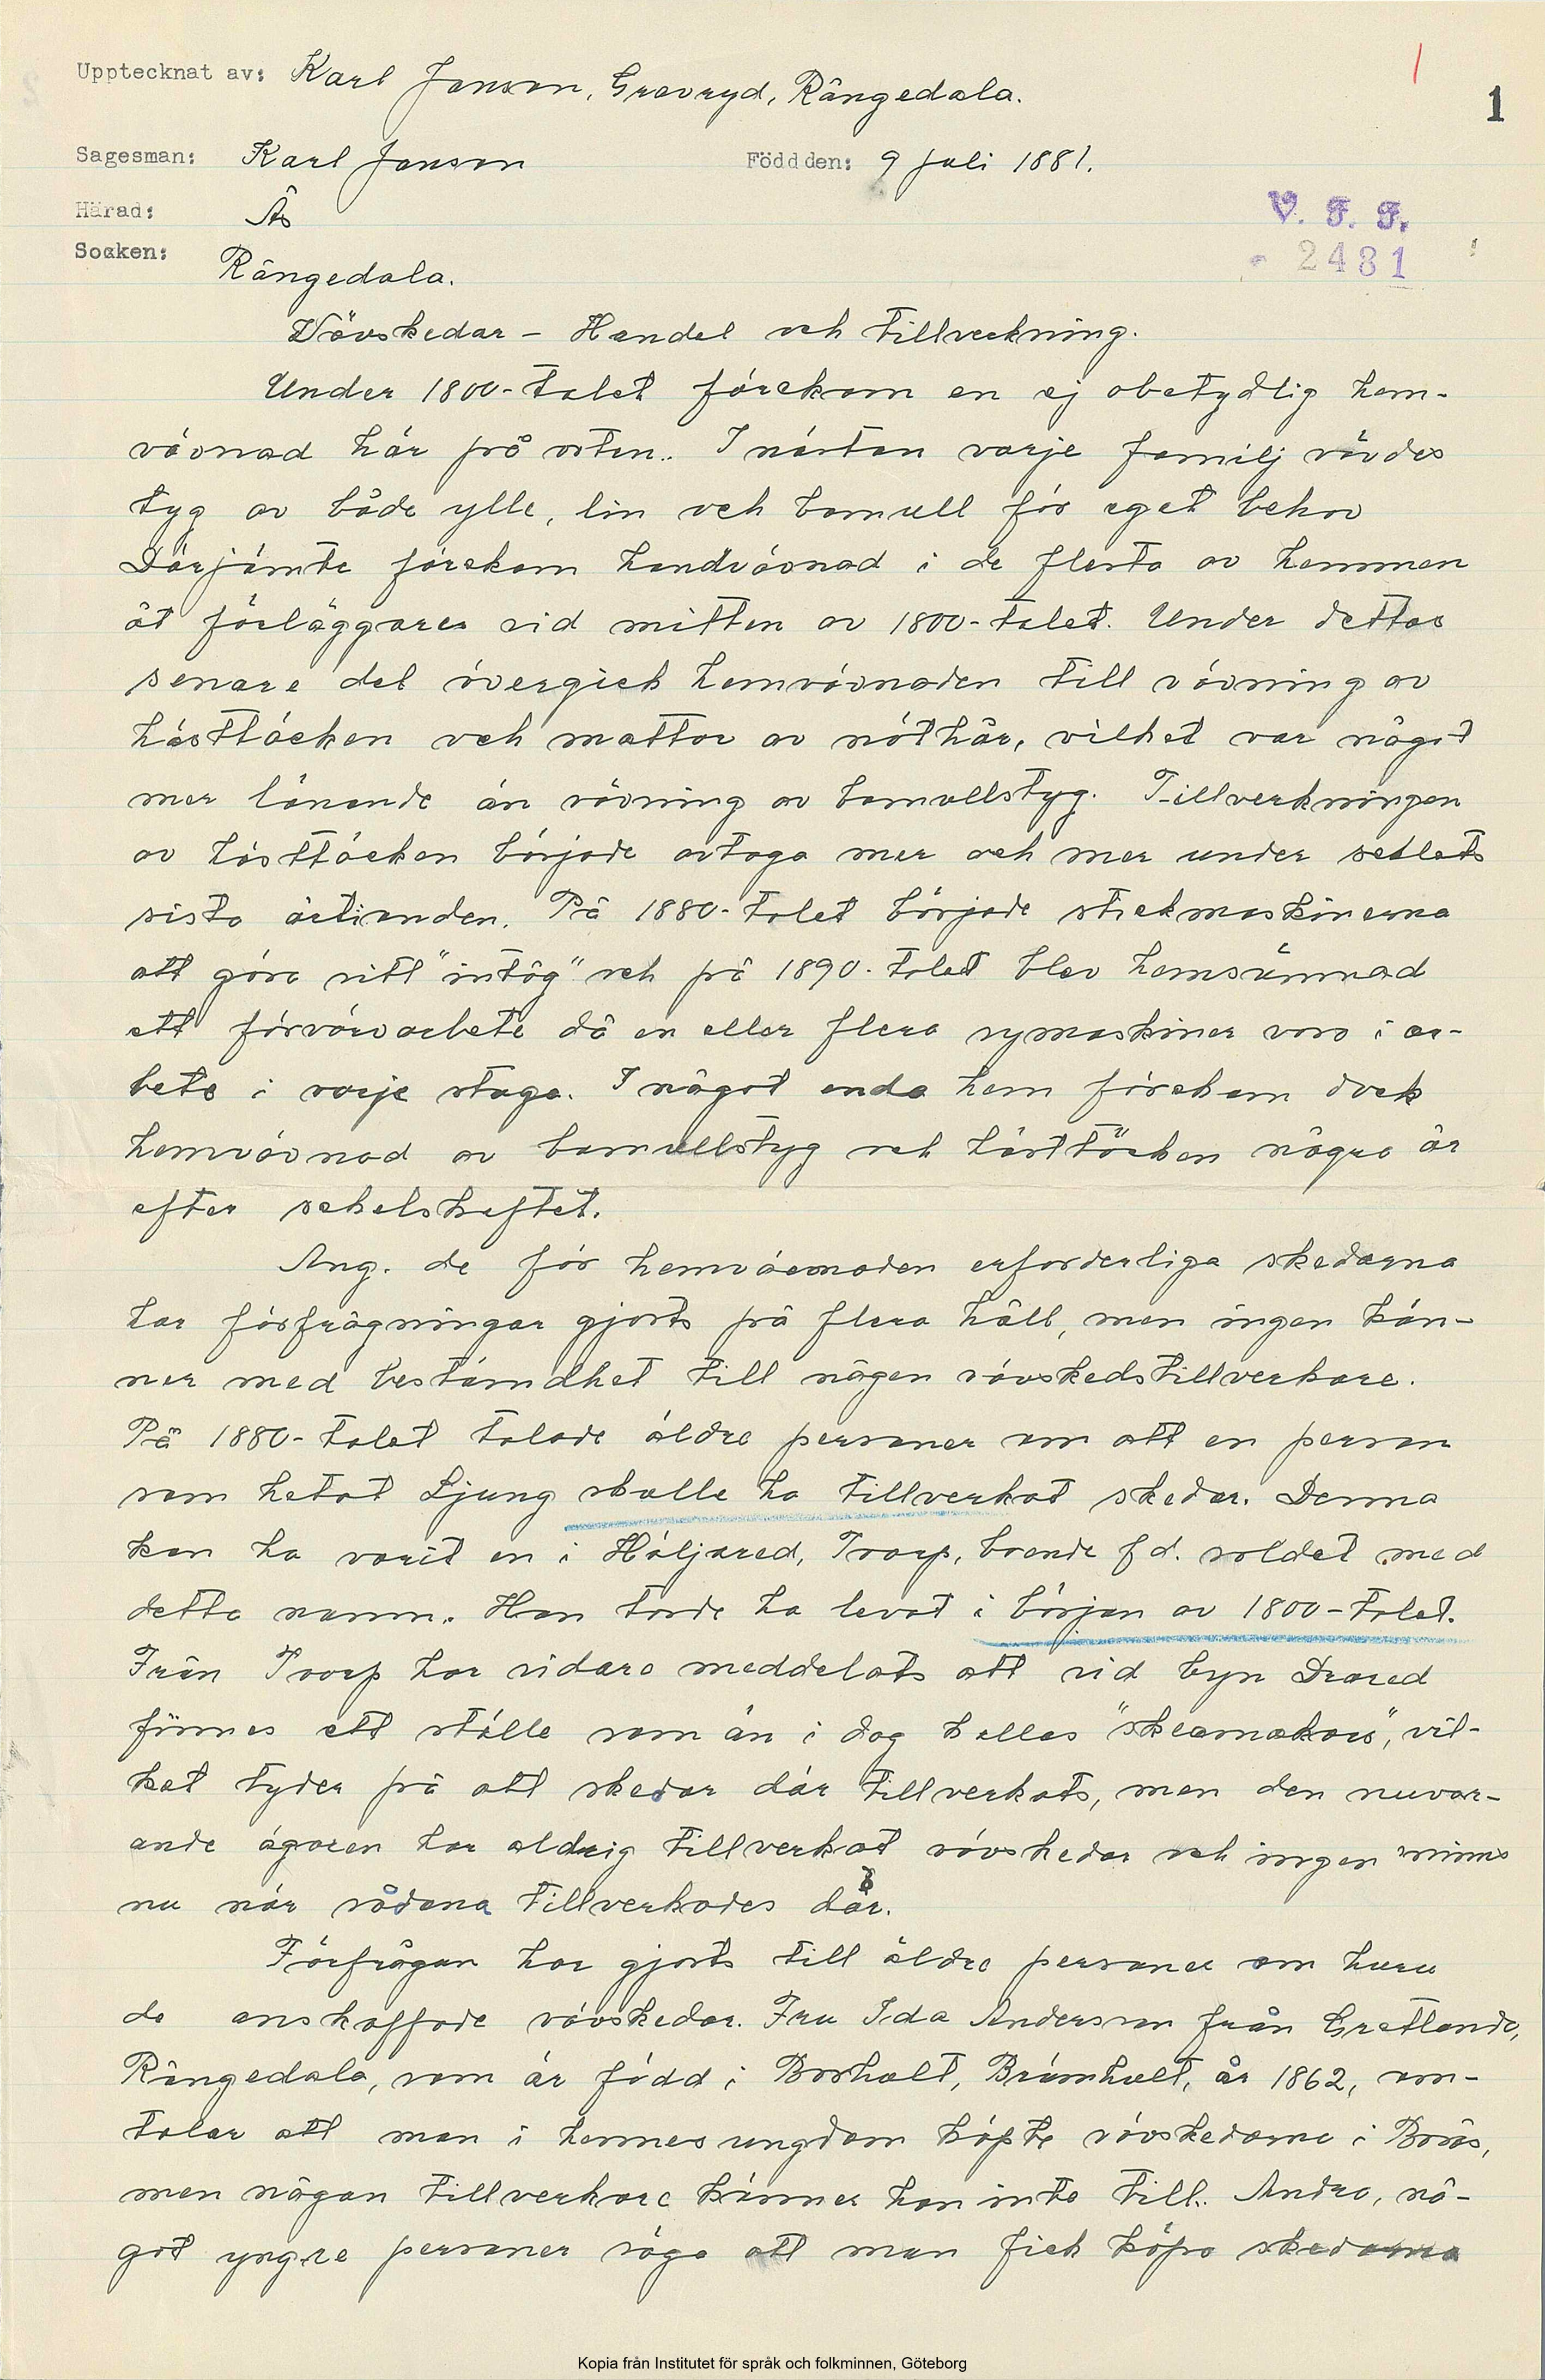 Upptecknat av: Karl Janson, Gravryd, Rångedala.
1
Sagesman: Karl Janson Född den: 9 juli 1881.
Härad: Ås
V. F. F.
Socken: Rångedala.
2481
Vävskedar - Handel och tillverkning.
Under 1800-talet förekom en ej obetydlig hem-
vävnad här på orten. I nästan varje familj vävdes
tyg av både ylle, lin och bomull för eget behov
Därjämte förekom handvävnad i de flesta av hemmen
åt förläggares vid mitten av 1800-talet. Under dettas
senare del övergick hemvävnaden till vävning av
hästtäcken och mattor av nöthår, vilket var något
mer lönande än vävning av bomullstyg. Tillverkningen
av hästtäcken började avtaga mer och mer under seklets
sista årtionden. På 1880-talet började stickmaskinerna
att göra sitt "intåg" och på 1890-talet blev hemsömnad
ett förvärvarbete då en eller flera symaskiner voro i ar-
bete i varje stuga. I något enda hem förekom dock
hemvävnad av bomullstyg och hästtäcken några år
efter sekelskiftet.
Ang. de för hemvävnaden erforderliga skedarna
har förfrågningar gjorts på flera håll, men ingen kän-
ner med bestämdhet till någon vävskedstillverkare.
På 1880-talet talade äldre personer om att en person
som hetat Ljung skulle ha tillverkat skedar. Denna
kan ha varit en i Häljared, Toarp, boende f d. soldat med
detta namn. Han torde ha levat i början av 1800-talet.
Från Toarp har vidare meddelats att vid byn Drared
finnes ett ställe som än i dag kallas "skeamakars", vil-
ket tyder på att skedar där tillverkats, men den nuvar-
ande ägaren har aldrig tillverkat vävskedar och ingen minns
nu när sådana tillverkades där.
Förfrågan har gjorts till äldre personer om huru
de anskaffade vävskedar. Fru Ida Andersson från Gretlanda,
Rångedala, som är född i Boshult, Brämhult, år 1862, om-
talar att man i hennes ungdom köpte vävskedarna i Borås,
men någon tillverkare känner hon inte till. Andra, nå-
got yngre personer säga att man fick köpa skedarna
Kopia från Institutet för språk och folkminnen, Göteborg